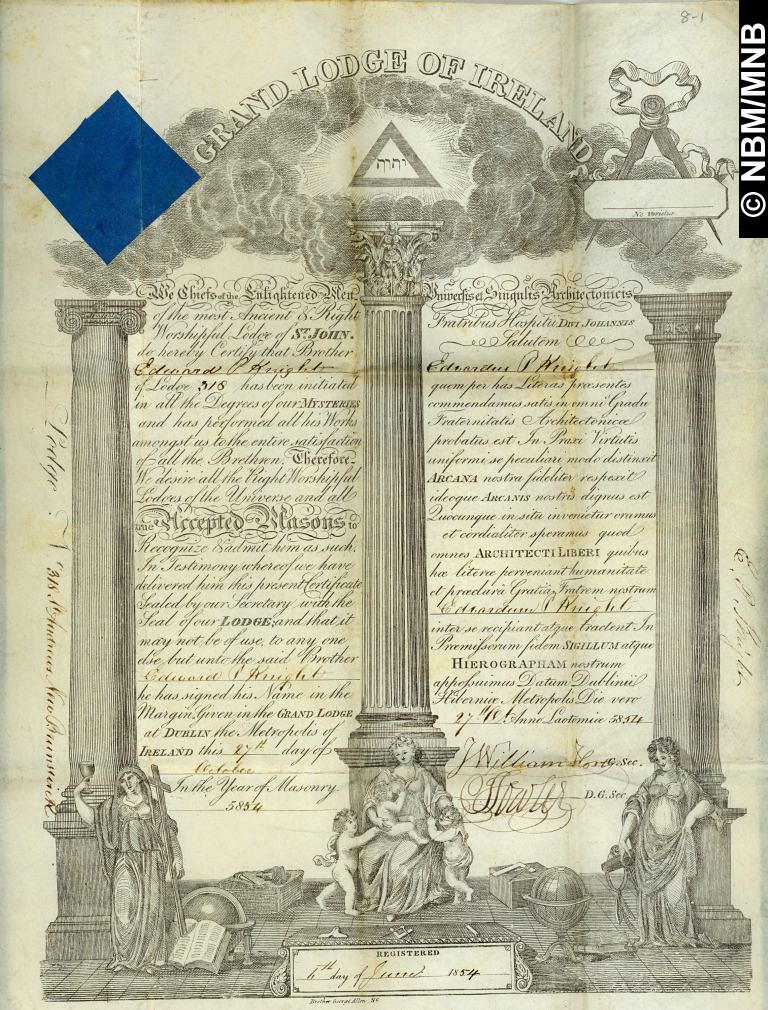 8-1
© NBM/MNB
GRAND LODGE OF IRELAND
יהוה
Ne Varietur
We Chiefs of the Enlightened Men
of the most Ancient & Right
Worshipful Lodge of ST. JOHN.
do hereby Certify that Brother
Edward P Knight
of Lodge 318 has been initiated
in all the Degrees of our MYSTERIES
and has performed all his Works
amongst us to the entire satisfaction
of all the Brethren. Therefore
We desire all the Right Worshipful
Lodges of the Universe and all
true Accepted Masons to
Recognize & admit him as such.
In Testimony whereof we have
delivered him this present Certificate
Sealed by our Secretary with the
Seal of our LODGE; and that it
may not be of use to any one
else but unto the said Brother
Edward P Knight
he has signed his Name in the
Margin. Given in the GRAND LODGE
at DUBLIN the Metropolis of
IRELAND this 27th day of
October
In the Year of Masonry
5854
Universis et Singulis Architectonicis
Fratribus Hospitii DIVI JOHANNIS
Salutem
Edvardus P Knight
quem per has Literas præsentes
commendamus satis in omni Gradu
Fraternitatis Architectonicæ
probatus est In Praxi Virtutis
uniformi se peculiari modo distinxit
ARCANA nostra fideliter respexit
ideoque ARCANIS nostris dignus est
Quocunque in situ invenietur oramus
et cordialiter speramus quod
omnes ARCHITECTI LIBERI quibus
hæ literæ perveniant humanitate
et præclara Gratia Fratrem nostrum
Edvardum P Knight
inter se recipiant atque tractent In
Præmissorum fidem SIGILLUM atque
HIEROGRAPHAM nostrum
apposuimus Datum Dublinii
Hiberniæ Metropolis Die vero
27th Anno Laotomiæ 5854
G. Sec.
Fowler
D. G. Sec.
Lodge No 318 St Andrews New Brunswick
E. P. Knight
REGISTERED
6th day of June 1854
Brother George Allen. SC